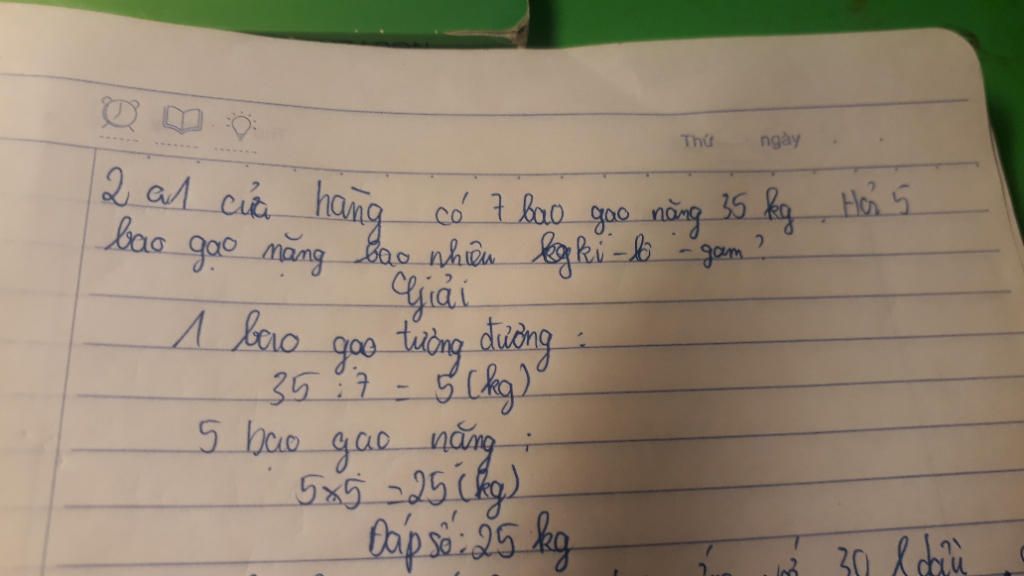 Thứ ngày
2 a1 cửa hàng có 7 bao gạo nặng 35 kg. Hỏi 5
bao gạo nặng bao nhiêu ki-lô-gam?
Giải
1 bao gạo tương đương:
35 : 7 = 5 (kg)
5 bao gạo nặng:
5×5 = 25 (kg)
Đáp số: 25 kg
30 l dầu